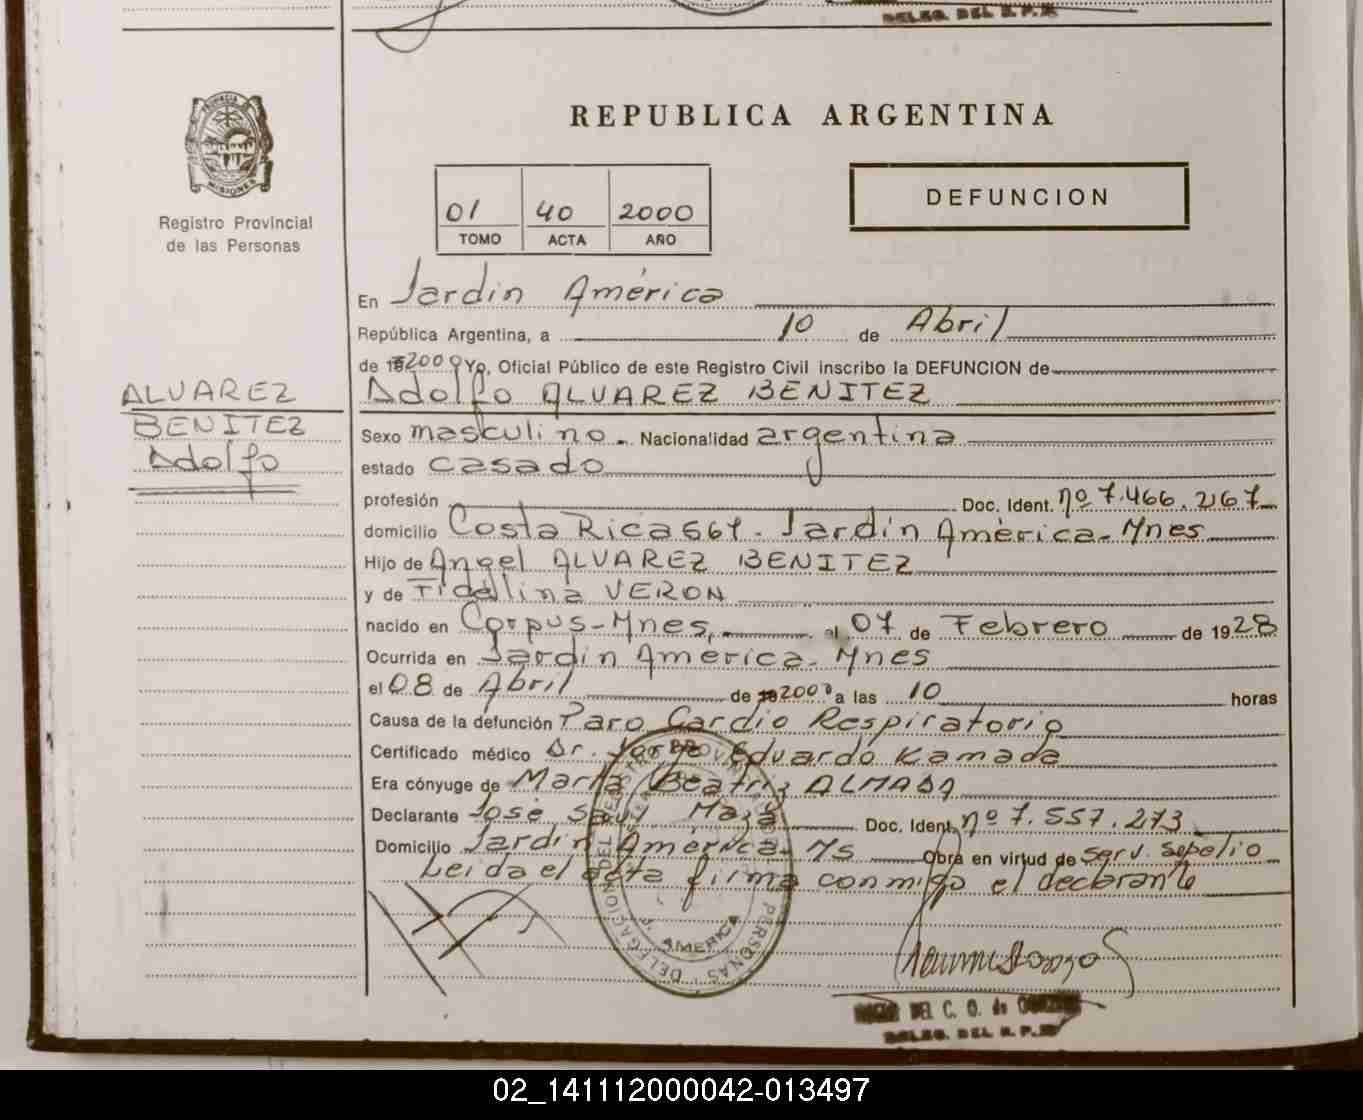 DELEG. DEL R.P.P.
PROVINCIA DE
MISIONES
REPUBLICA ARGENTINA
Registro Provincial
de las Personas
01 40 2000
TOMO ACTA AÑO
DEFUNCION
En Jardín América
República Argentina, a 10 de Abril
de 2000 Yo, Oficial Público de este Registro Civil inscribo la DEFUNCION de
ALVAREZ
BENITEZ
Adolfo
Adolfo ALVAREZ BENITEZ
Sexo masculino. Nacionalidad argentina
estado casado
profesión Doc. Ident. nº 7.466.267
domicilio Costa Rica 667. Jardín América-Mnes
Hijo de Angel ALVAREZ BENITEZ
y de Fidelina VERON
nacido en Corpus-Mnes, el 07 de Febrero de 1928
Ocurrida en Jardín América-Mnes
el 08 de Abril de 2000 a las 10 horas
Causa de la defunción Paro Cardio Respiratorio
Certificado médico Dr. Jorge Eduardo Kamada
Era cónyuge de María Beatriz ALMADA
Declarante José Saul Maza Doc. Ident. nº 7.557.273
Domicilio Jardín América-Ms Obra en virtud de serv. sepelio
Leida el acta firma conmigo el declarante
DELEGACION DEL REGISTRO PROVINCIAL PERSONAS
J. AMERICA
DEL C. O. de
DELEG. DEL R.P.P.
02_141112000042-013497